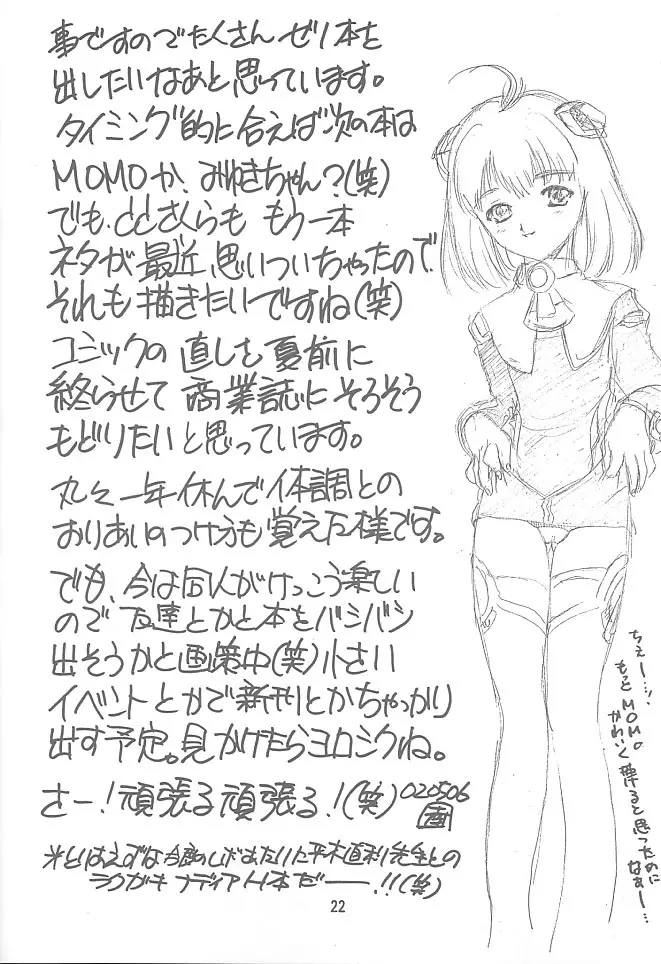 事ですのでたくさん ゼリ本を
出したいなあと思っています。
タイミング的に合えば次の本は
MOMOか、みゆきちゃん?(笑)
でも、CCさくらも もう一本
ネタが最近、思いついちゃったので、
それも描きたいですね(笑)
コミックの直しを夏前に
終らせて 商業誌にそろそろ
もどりたいと思っています。
丸々一年休んで体調との
おりあいのつけ方も覚えた様です。
でも、今は同人がけっこう楽しい
ので 友達とかと本をバシバシ
出そうかと画策中(笑)小さい
イベントとかで新刊とかちゃっかり
出す予定。見かけたらヨロシクね。
さー!頑張る頑張る!(笑)020506
画
※とりはえずな今度の
平木直利先生との
ラクガキ ナディアH本だーー!!(笑)
ちぇー…!、
もっとMOMO
かわいく
描ると思ったのに
なぁー…
22